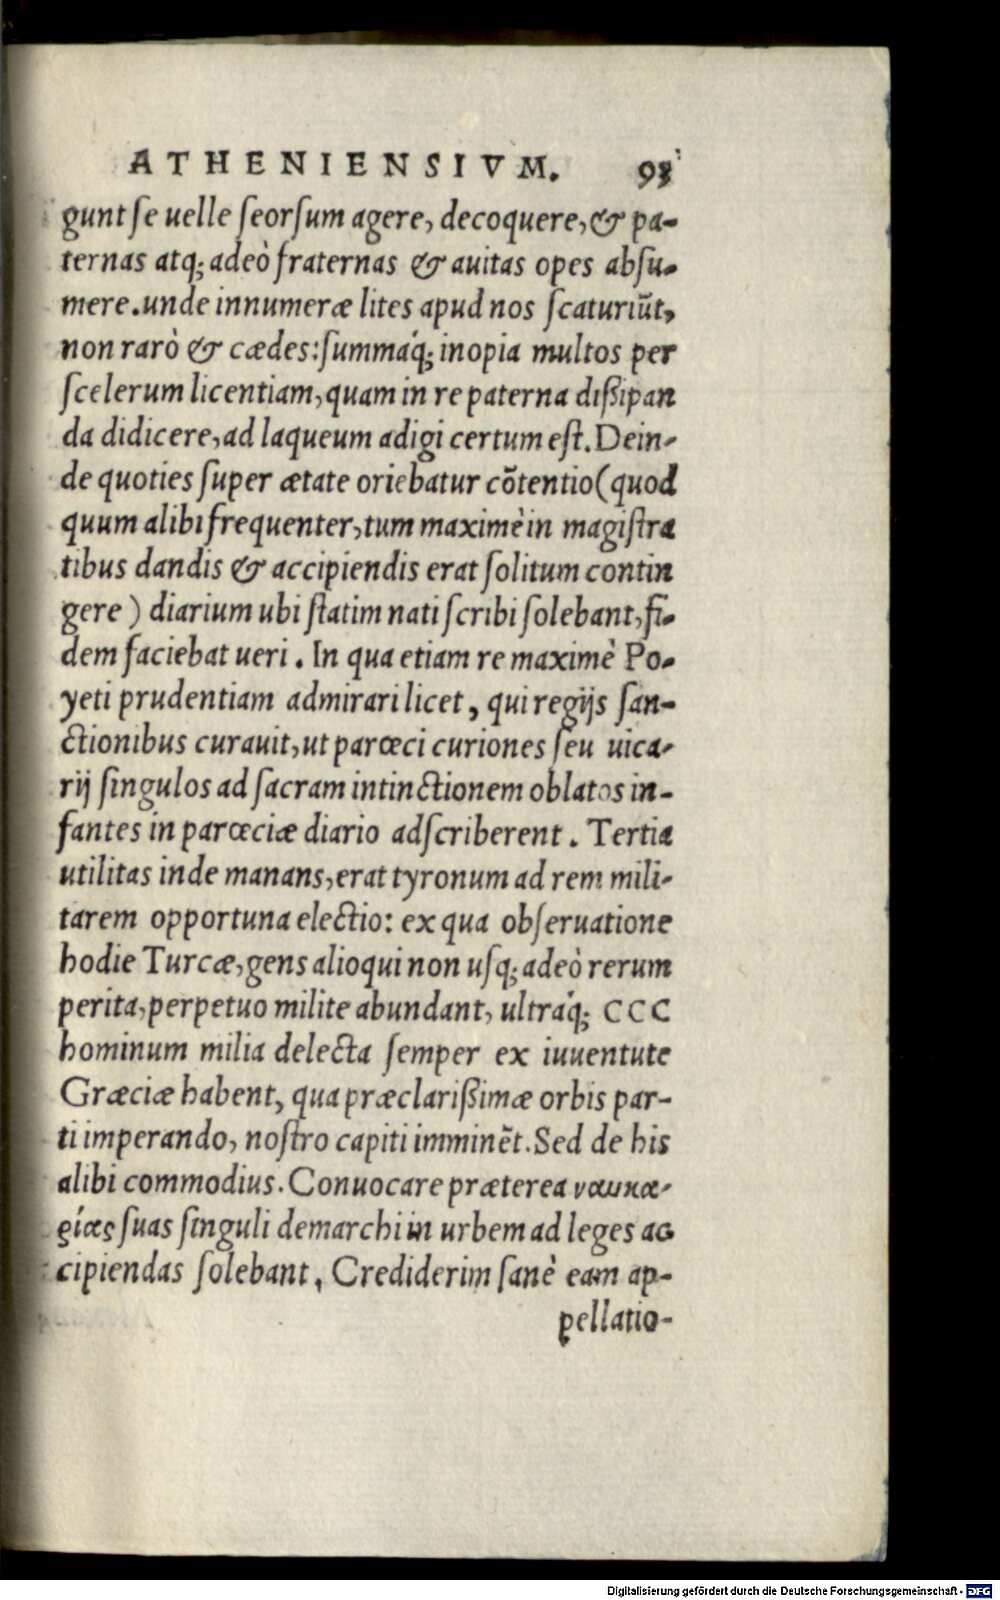 ATHENIENSIVM. 93
gunt se uelle seorsum agere, decoquere, & pa-
ternas atq; adeò fraternas & auitas opes absu-
mere. unde innumeræ lites apud nos scaturiūt,
non rarò & cædes: summáq; inopia multos per
scelerum licentiam, quam in re paterna dißipan
da didicere, ad laqueum adigi certum est. Dein-
de quoties super ætate oriebatur cōtentio (quod
quum alibi frequenter, tum maximè in magistra
tibus dandis & accipiendis erat solitum contin
gere) diarium ubi statim nati scribi solebant, fi-
dem faciebat ueri. In qua etiam re maximè Po-
yeti prudentiam admirari licet, qui regijs san-
ctionibus curauit, ut parœci curiones seu uica-
rij singulos ad sacram intinctionem oblatos in-
fantes in parœciæ diario adscriberent. Tertia
utilitas inde manans, erat tyronum ad rem mili-
tarem opportuna electio: ex qua obseruatione
hodie Turcæ, gens alioqui non usq; adeò rerum
perita, perpetuo milite abundant, ultráq; CCC
hominum milia delecta semper ex iuuentute
Græciæ habent, qua præclarißimæ orbis par-
ti imperando, nostro capiti imminēt. Sed de his
alibi commodius. Conuocare præterea ναυκα-
ρίας suas singuli demarchi in urbem ad leges ac
cipiendas solebant, Crediderim sanè eam ap-
pellatio-
Digitalisierung gefördert durch die Deutsche Forschungsgemeinschaft - DFG